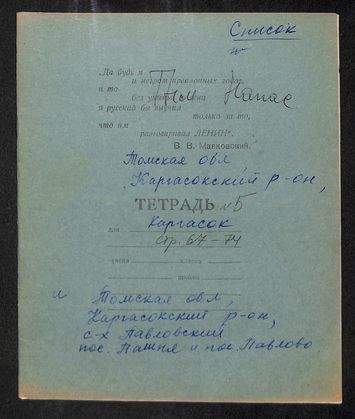 Список
„Да будь я
и негром преклонных годов,
и то
без унынья и лени
я русский бы выучил
только за то,
что им
разговаривал ЛЕНИН".
В. В. Маяковский.
Томская обл
Каргасокский р-он,
ТЕТРАДЬ №5
для Каргасок
стр. 67 – 74
учени
класса
школы
и Томская обл,
Каргасокский р-он,
с-х Павловский
пос. Пашня и пос. Павлово